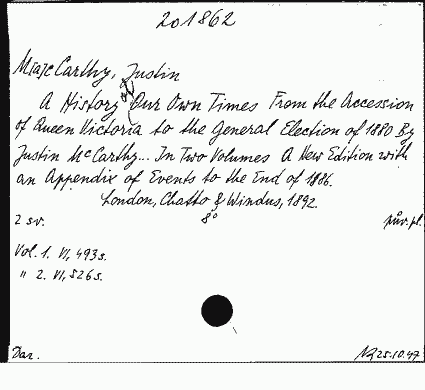 201862
M[a]c Carthy, Justin
A History of Our Own Times From the Accession
of Queen Victoria to the General Election of 1880 By
Justin McCarthy... In Two Volumes A New Edition with
an Appendix of Events to the End of 1886.
London, Chatto & Windus, 1892.
2 sv. 8° pův. pl.
Vol. 1. VI, 493 s.
" 2. VI, 526 s.
Dar. 25.10.47